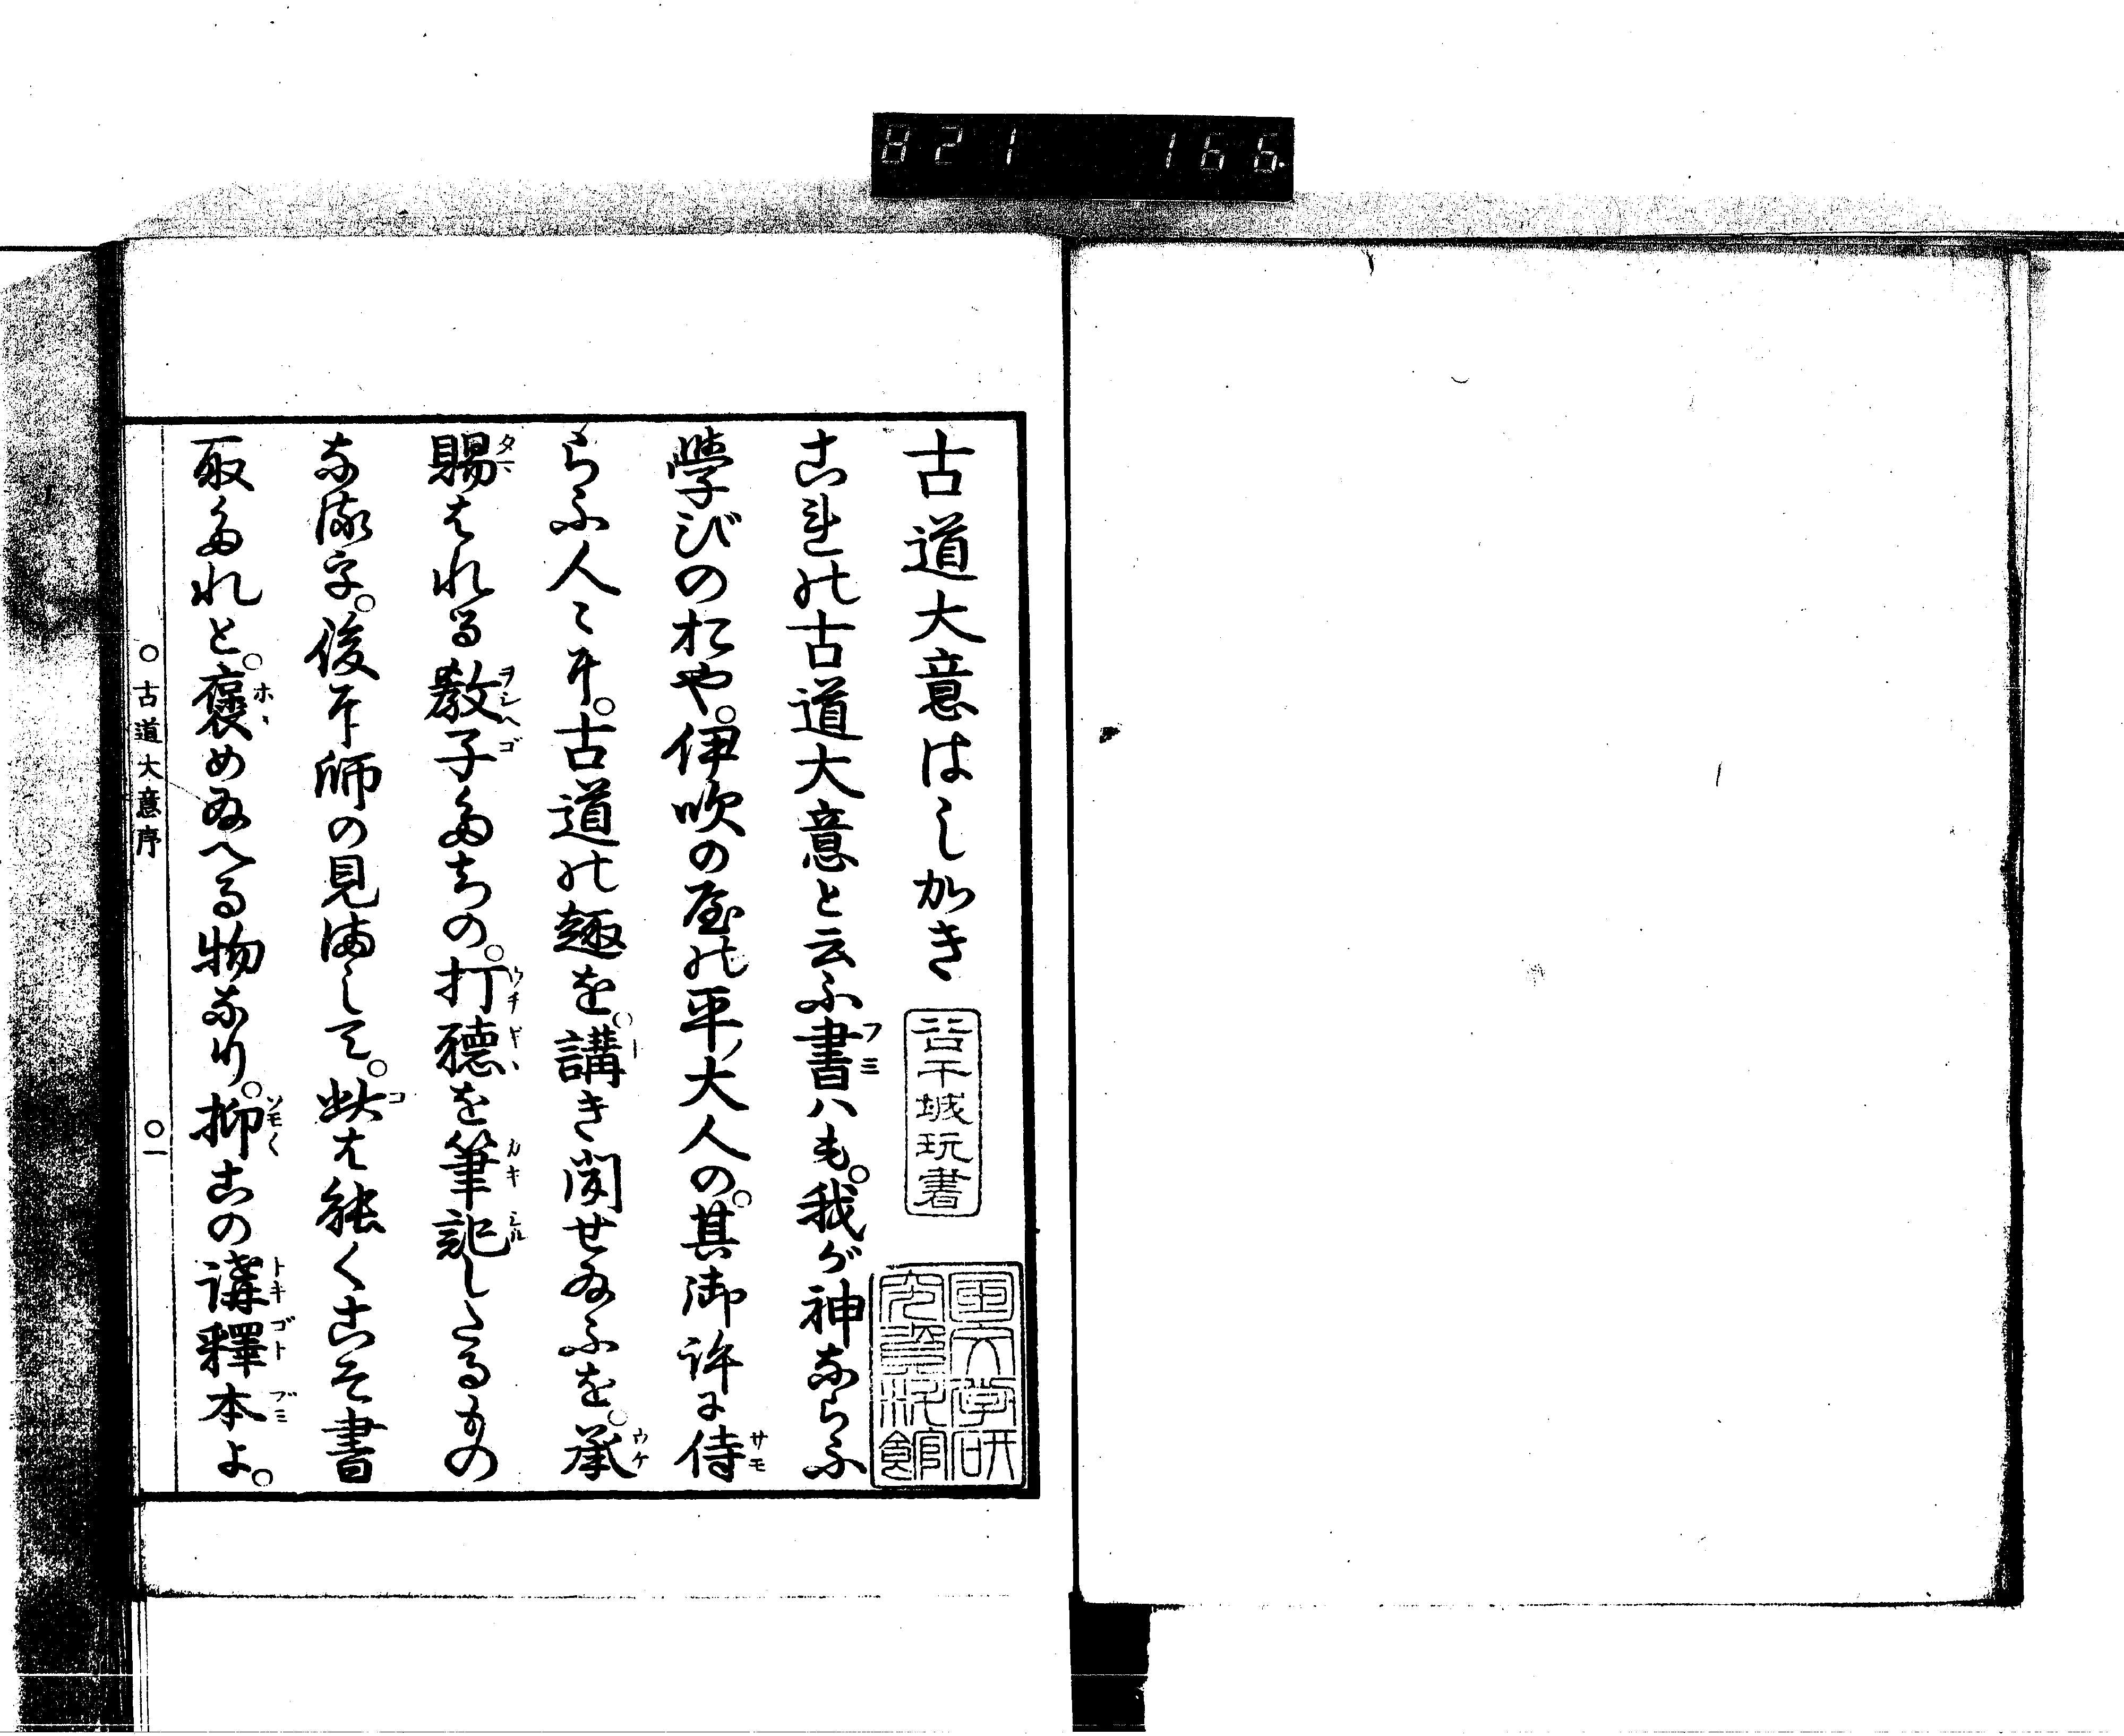 821 166
古道大意はしがき
これの古道大意と云ふ書ハも。我が神ならふ
學びのおや。伊吹の屋の平大人の。其御許に侍
らふ人々に。古道の趣を。講き聞せ給ふを。承
賜はれる教子たちの。打聴を筆記したるもの
なる
後に師の見まして。此は能くこそ書
取たれと。褒め給へる物なり。抑この講釋本よ。
古道大意序
一
干城玩書
国文学研究資料館